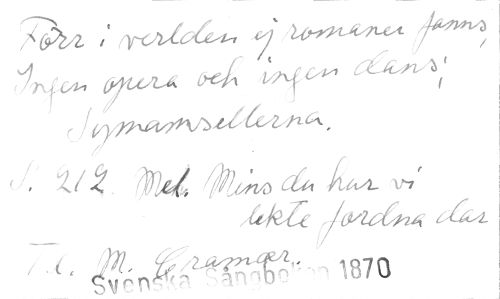 Förr i verlden ej romaner fanns,
Ingen opera och ingen dans;
Symamsellerna.
S. 212. Mel. Mins du hur vi
lekte fordna dar
T.e. M. Cramær.
Svenska Sångboken 1870